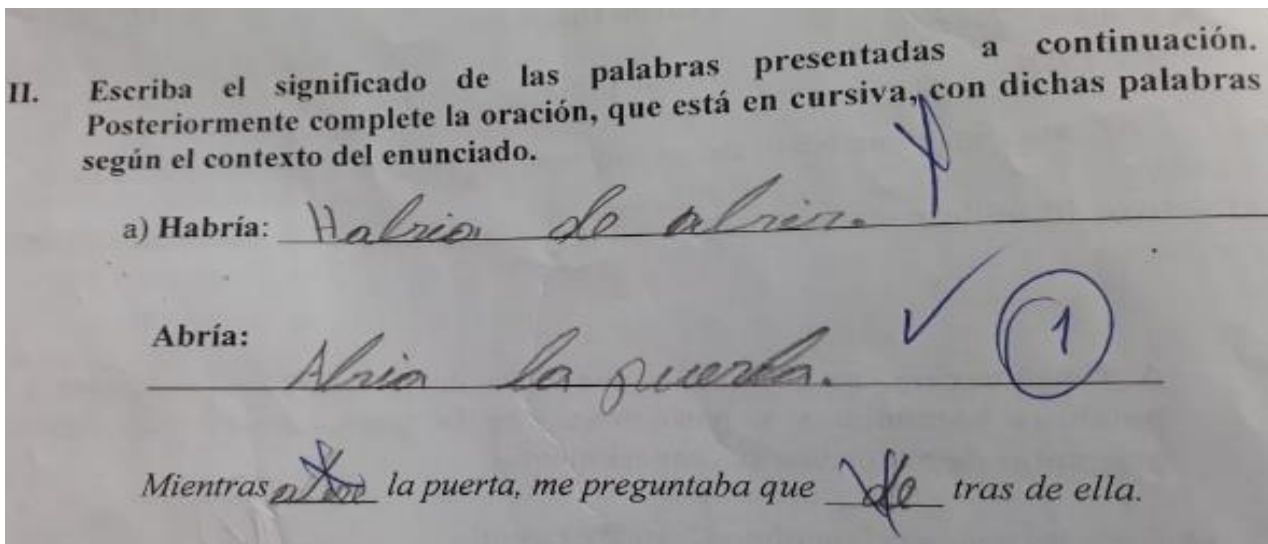 II. Escriba el significado de las palabras presentadas a continuación.
Posteriormente complete la oración, que está en cursiva, con dichas palabras
según el contexto del enunciado.
a) Habría: Habria de abrir.
Abría:
Abria la puerta.
1
Mientras la puerta, me preguntaba que de tras de ella.